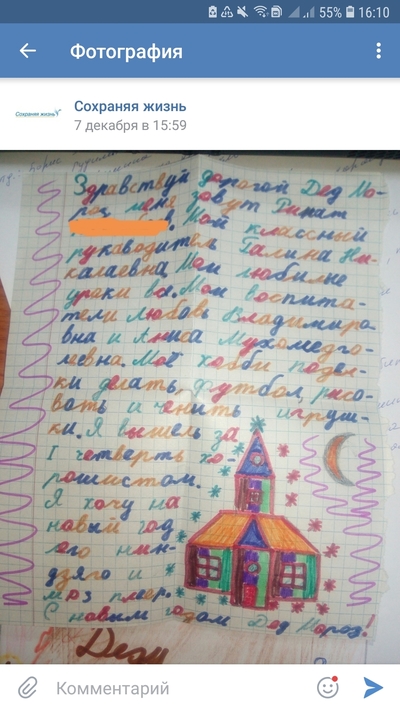 55% 16:10
Фотография
Сохраняя жизнь
Сохраняя жизнь
7 декабря в 15:59
Здравствуй дорогой Дед Мо-
роз меня зовут Ринат
в. Мой классный
руководител Галина Ни-
калаевна Мои любимые
уроки все. Мои воспита-
тели Любовь Владимиро-
вна и Аниса Мухомедго-
леевна. Моё хобби подел-
ки делать, футбол, рисо-
вать и ченить игруш-
ки. Я вышель за
I четверть хо-
рошистом.
Я хочу на
новый год
лего нин-
дзяго и
мрз плеер.
С новым годом Дед Мороз!
Деду
Комментарий